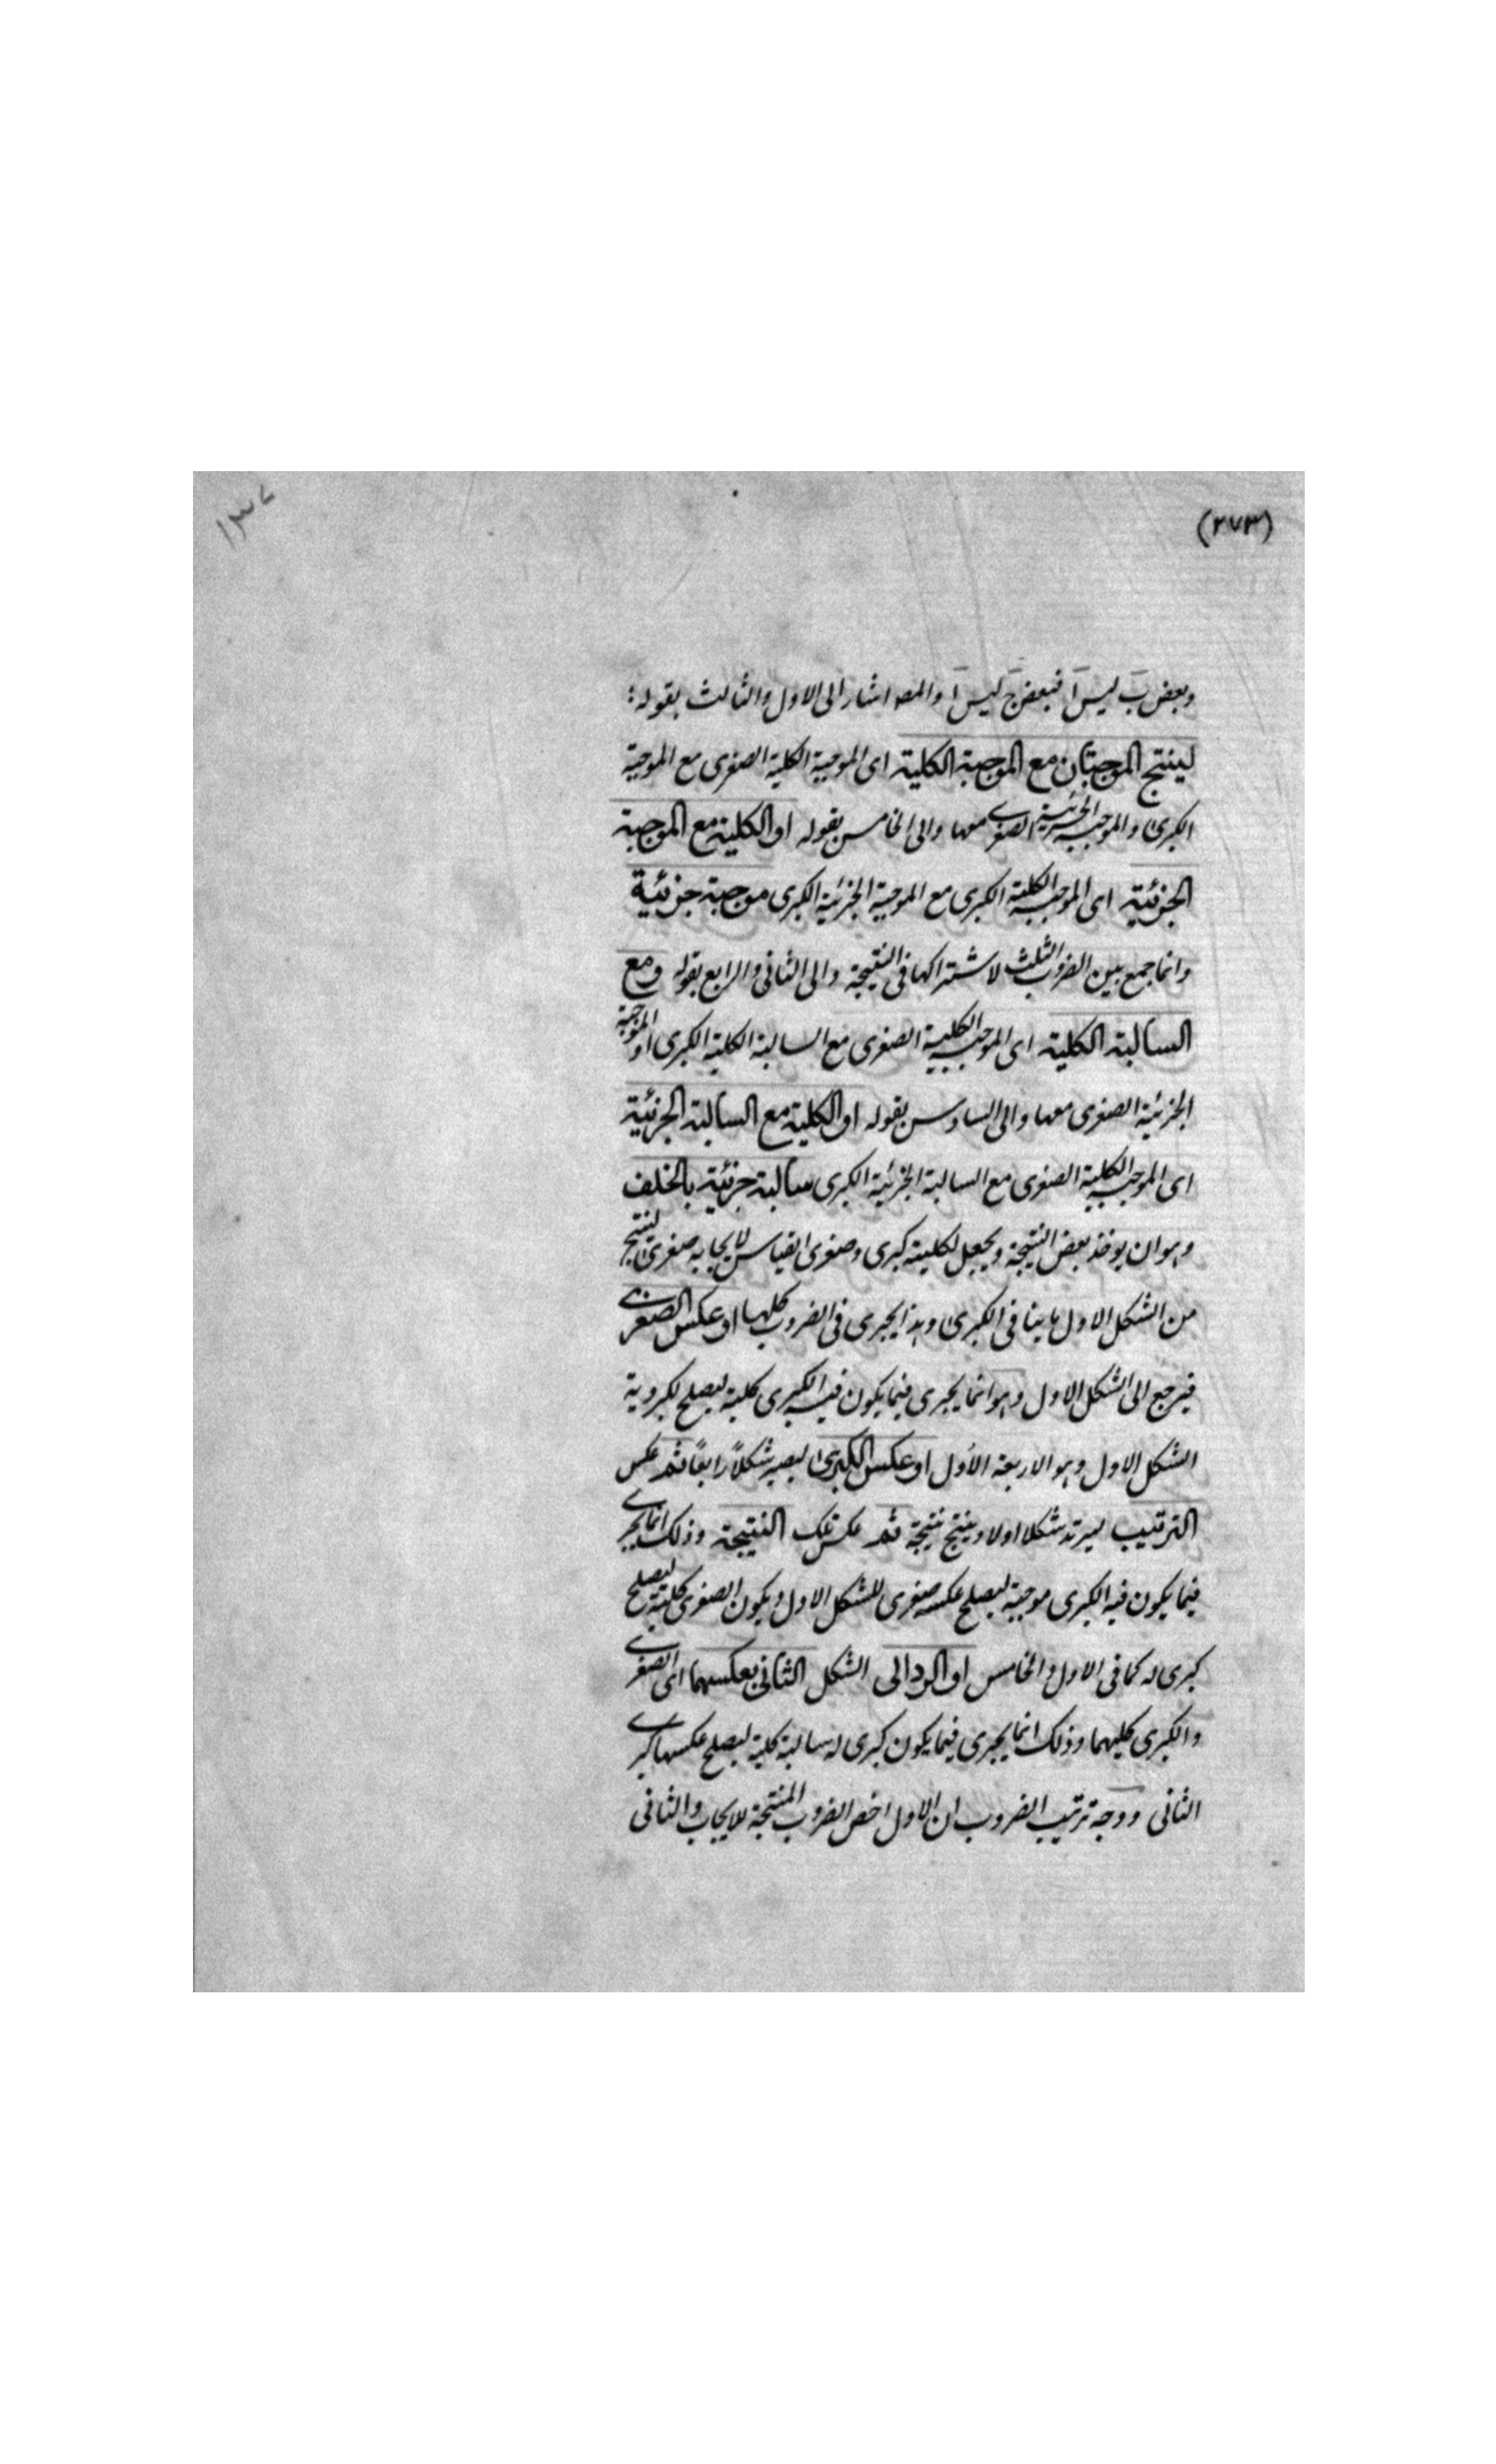 (٢٧٣)
١٣٧
وبعض ب ليس ا فبعض ج ليس ا والمصـ اشار الى الاول والثالث بقوله:
لينتج الموجبتان مع الموجبة الكلية اى الموجبة الكلية الصغرى مع الموجبة
الكبرى والموجبة الجزئية الصغرى معها والى الخامس بقوله او الكلية مع الموجبة
الجزئية اى الموجبة الكلية الكبرى مع الموجبة الجزئية الكبرى موجبة جزئية
وانما جمع بين الضروب الثلث لاشتراكها فى النتيجة والى الثانى والرابع بقوله ومع
السالبة الكلية اى الموجبة الكلية الصغرى مع السالبة الكلية الكبرى او الموجبة
الجزئية الصغرى معها والى السادس بقوله او الكلية مع السالبة الجزئية
اى الموجبة الكلية الصغرى مع السالبة الجزئية الكبرى سالبة جزئية بالخلف
وهو ان يوخذ بعض النتيجة ويجعل لكليته كبرى وصغرى القياس لايجابه صغرى لينتج
من الشكل الاول ما ينافى الكبرى وهذا يجرى فى الضروب كلها او عكس الصغرى
فيرجع الى الشكل الاول وهو انما يجرى فيما يكون فيه الكبرى كلية ليصلح لكبروية
الشكل الاول وهو الاربعة الأول او عكس الكبرى ليصير شكلاً رابعاً ثم عكس
الترتيب ليرتد شكلا اولا وينتج نتيجة ثم عكس تلك النتيجة وذلك انما يجرى
فيما يكون فيه الكبرى موجبة ليصلح عكسه صغرى للشكل الاول ويكون الصغرى كلية ليصلح
كبرى له كما فى الاول والخامس او الرد الى الشكل الثانى بعكسهما اى الصغرى
والكبرى كليهما وذلك انما يجرى فيما يكون كبرى له سالبة كلية ليصلح عكسها كبرى
الثانى ووجه ترتيب الضروب ان الاول اخص الضروب المنتجة للايجاب والثانى